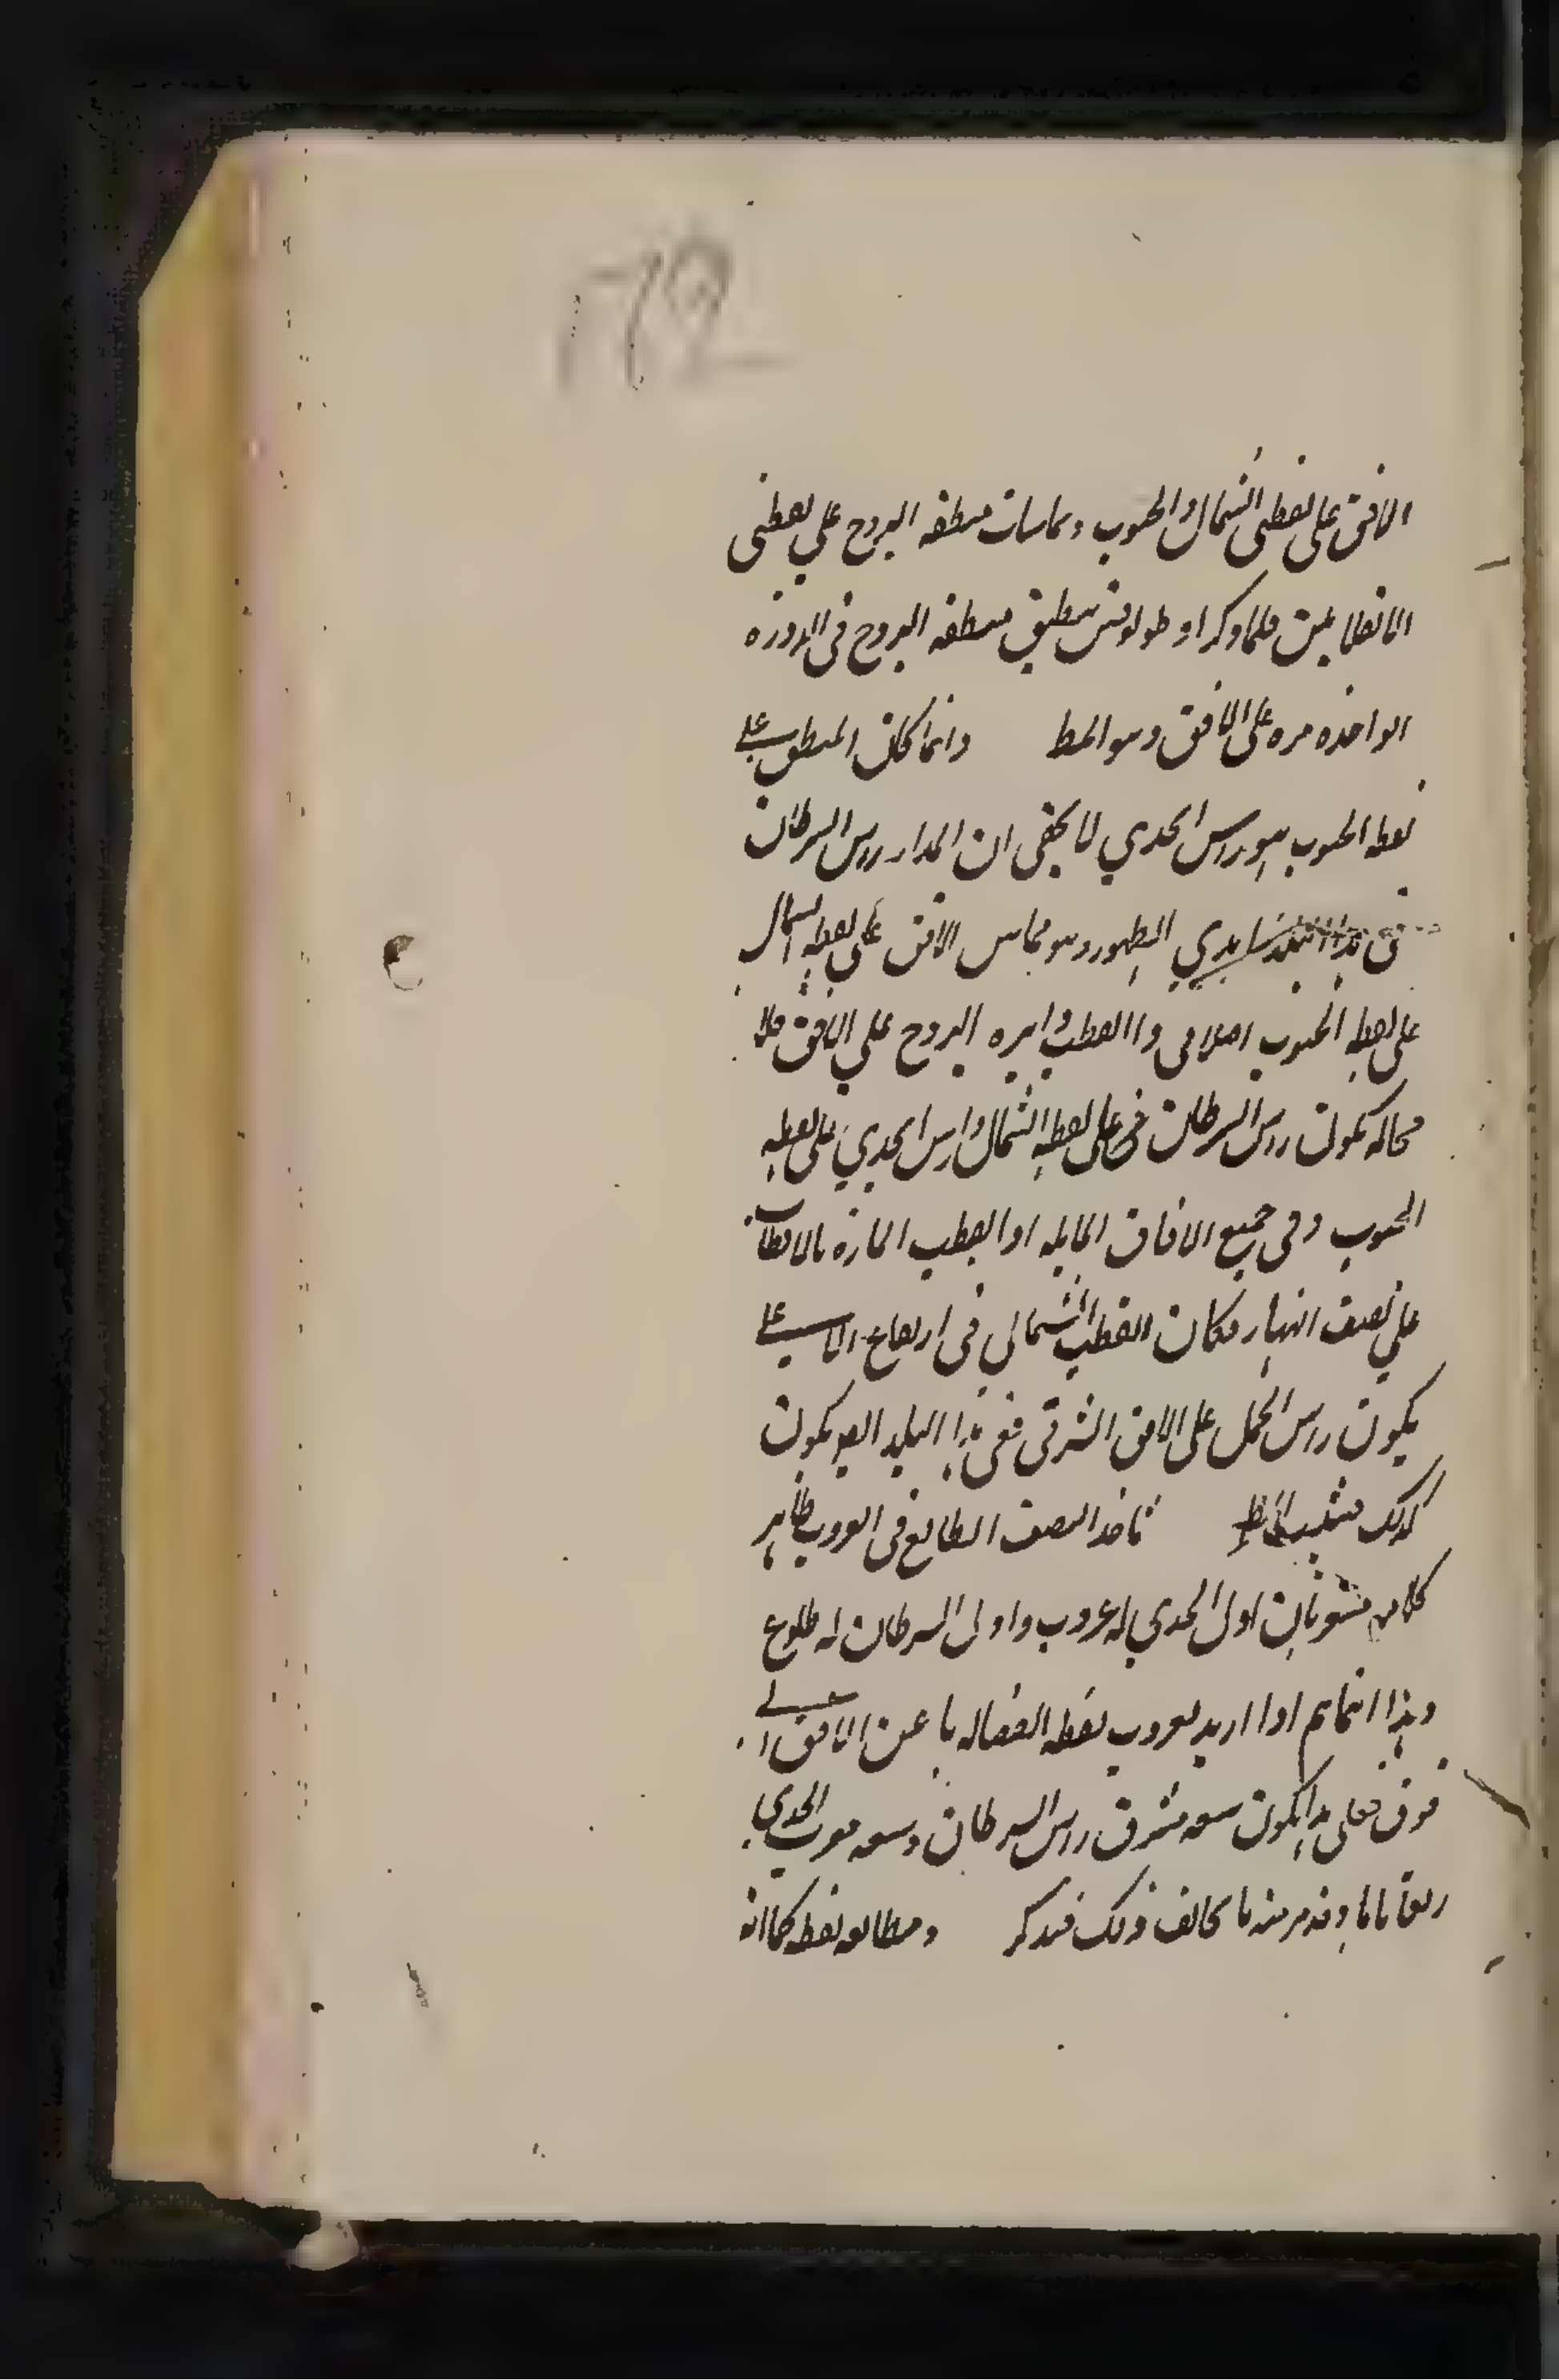 172
الافق على نقطتى الشمال والجنوب ومماسات منطقه البروج على نقطتى
الانقلابين فلما ذكر او طولوقس ينطبق منطقه البروج فى الدورة
الواحده مره على الافق وهو المط وانما كان المنطبق على
نقطه الجنوب هو راس الجدي لا يخفى ان المدار راس السرطان
فى هذا البلد ابدي الظهور وهو مماس الافق على نقطه الشمال
على نقطه الجنوب اعلامى واذا انطبق دايره البروج على الافق فلا
محاله يكون راس السرطان ح على نقطه الشمال وراس الجدي على نقطه
الجنوب وفى جميع الافاق المايله اذا انطبق المارة بالاقطاب
على نصف النهار فكان القطب الشمالي فى ارتفاع الاسـ على
يكون راس الحمل على الافق الشرقى ففى هذا البلد ايضا يكون
كذلك فيثبت المط فاخذ النصف الطالع فى الغروب ظاهر
كلامهم مشعر بان اول الجدي له غروب واول السرطان له طلوع
وهذا انما يتم اذا اريد بغروب نقطه انفصالها عن الافق الى
فوق فعلى هذا يكون سعه مشرق راس السرطان وسعه مغرب الجدي
ربعا تاما وقد مر منه ما يخالف ذلك فتذكر ومطالعه نقطه كما انه